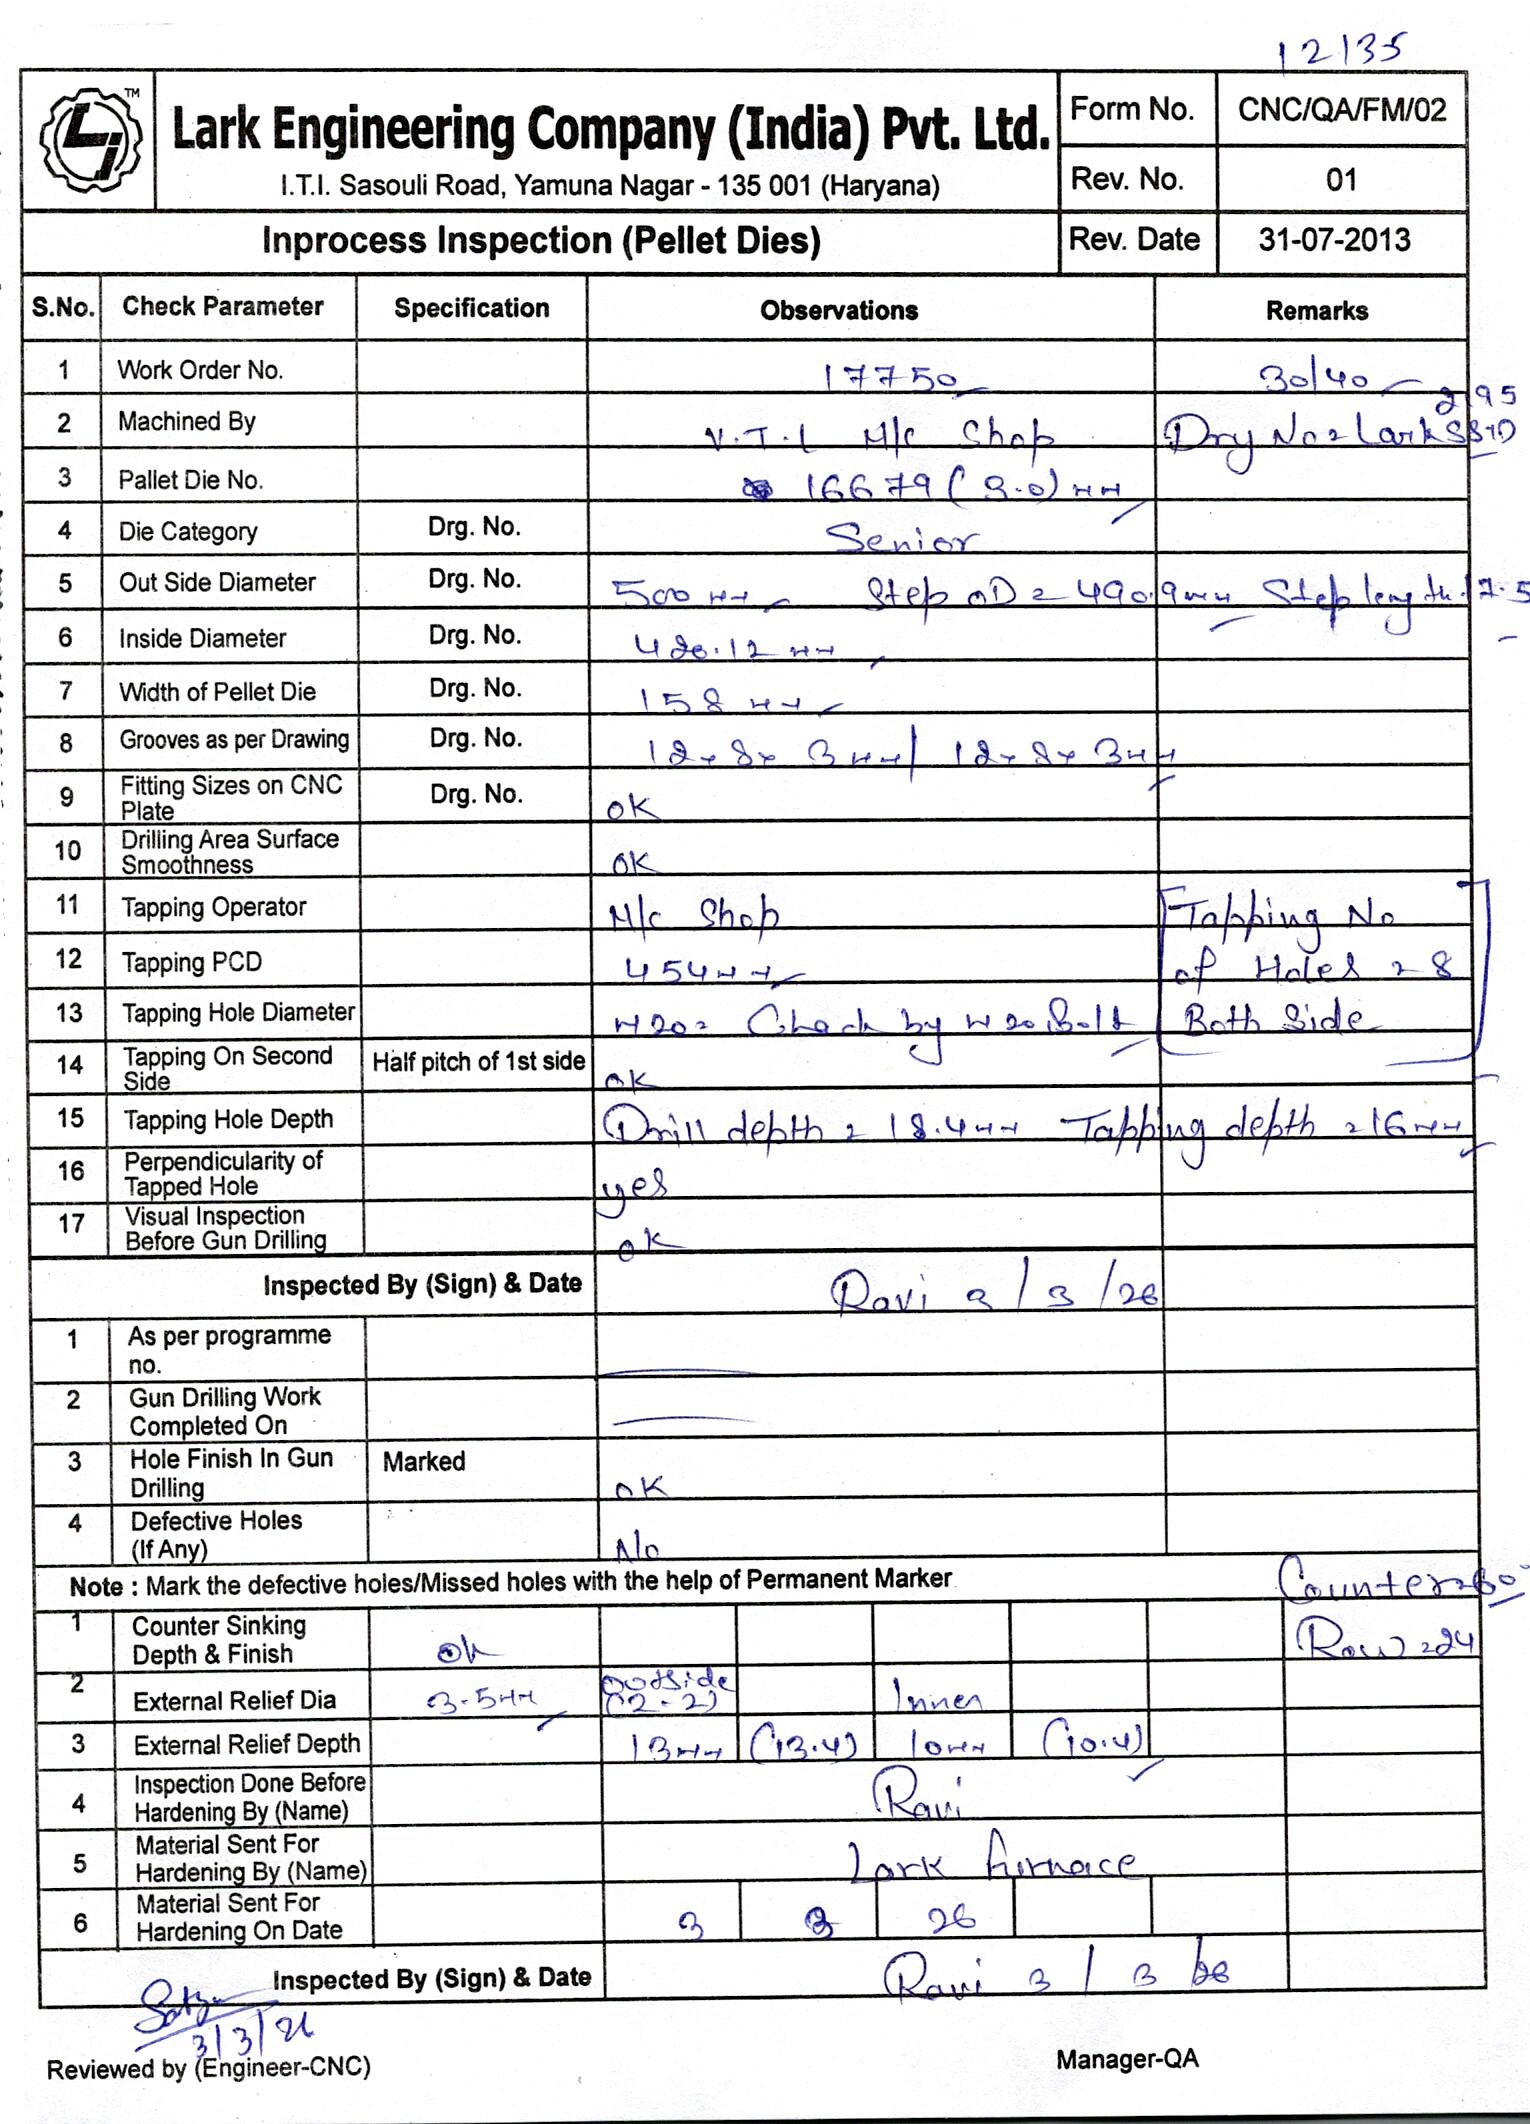 12135
TM
Lark Engineering Company (India) Pvt. Ltd.
I.T.I. Sasouli Road, Yamuna Nagar - 135 001 (Haryana)
Form No. CNC/QA/FM/02
Rev. No. 01
Inprocess Inspection (Pellet Dies) Rev. Date 31-07-2013
S.No. Check Parameter Specification Observations Remarks
1 Work Order No. 17750 30/40
2 Machined By V.T.L M/c Shop Dry No = Lark
3 Pallet Die No. 16679 (3.0) mm
4 Die Category Drg. No. Senior
5 Out Side Diameter Drg. No. 500 mm Step OD = 490.9mm Step length 17.5
6 Inside Diameter Drg. No. 420.12 mm
7 Width of Pellet Die Drg. No. 158 mm
8 Grooves as per Drawing Drg. No. 12 x 8 x 3mm/ 12 x 8 x 3mm
9 Fitting Sizes on CNC Plate Drg. No. OK
10 Drilling Area Surface Smoothness OK
11 Tapping Operator M/c Shop Tapping No
12 Tapping PCD 454mm of Holes = 8
13 Tapping Hole Diameter M20 = Check by M20 Bolt Both Side
14 Tapping On Second Side Half pitch of 1st side OK
15 Tapping Hole Depth Drill depth = 18.4mm Tapping depth = 16mm
16 Perpendicularity of Tapped Hole yes
17 Visual Inspection Before Gun Drilling OK
Inspected By (Sign) & Date Ravi 3/3/26
1 As per programme no.
2 Gun Drilling Work Completed On
3 Hole Finish In Gun Drilling Marked OK
4 Defective Holes (If Any) No
Note : Mark the defective holes/Missed holes with the help of Permanent Marker Counter = 60°
1 Counter Sinking Depth & Finish OK Row = 24
2 External Relief Dia 3.5mm Outside (2-2) Inner
3 External Relief Depth 13mm (13.4) 10mm (10.4)
4 Inspection Done Before Hardening By (Name) Ravi
5 Material Sent For Hardening By (Name) Lark furnace
6 Material Sent For Hardening On Date 3 3 26
Inspected By (Sign) & Date Ravi 3/3/26
3/3/26
Reviewed by (Engineer-CNC) Manager-QA